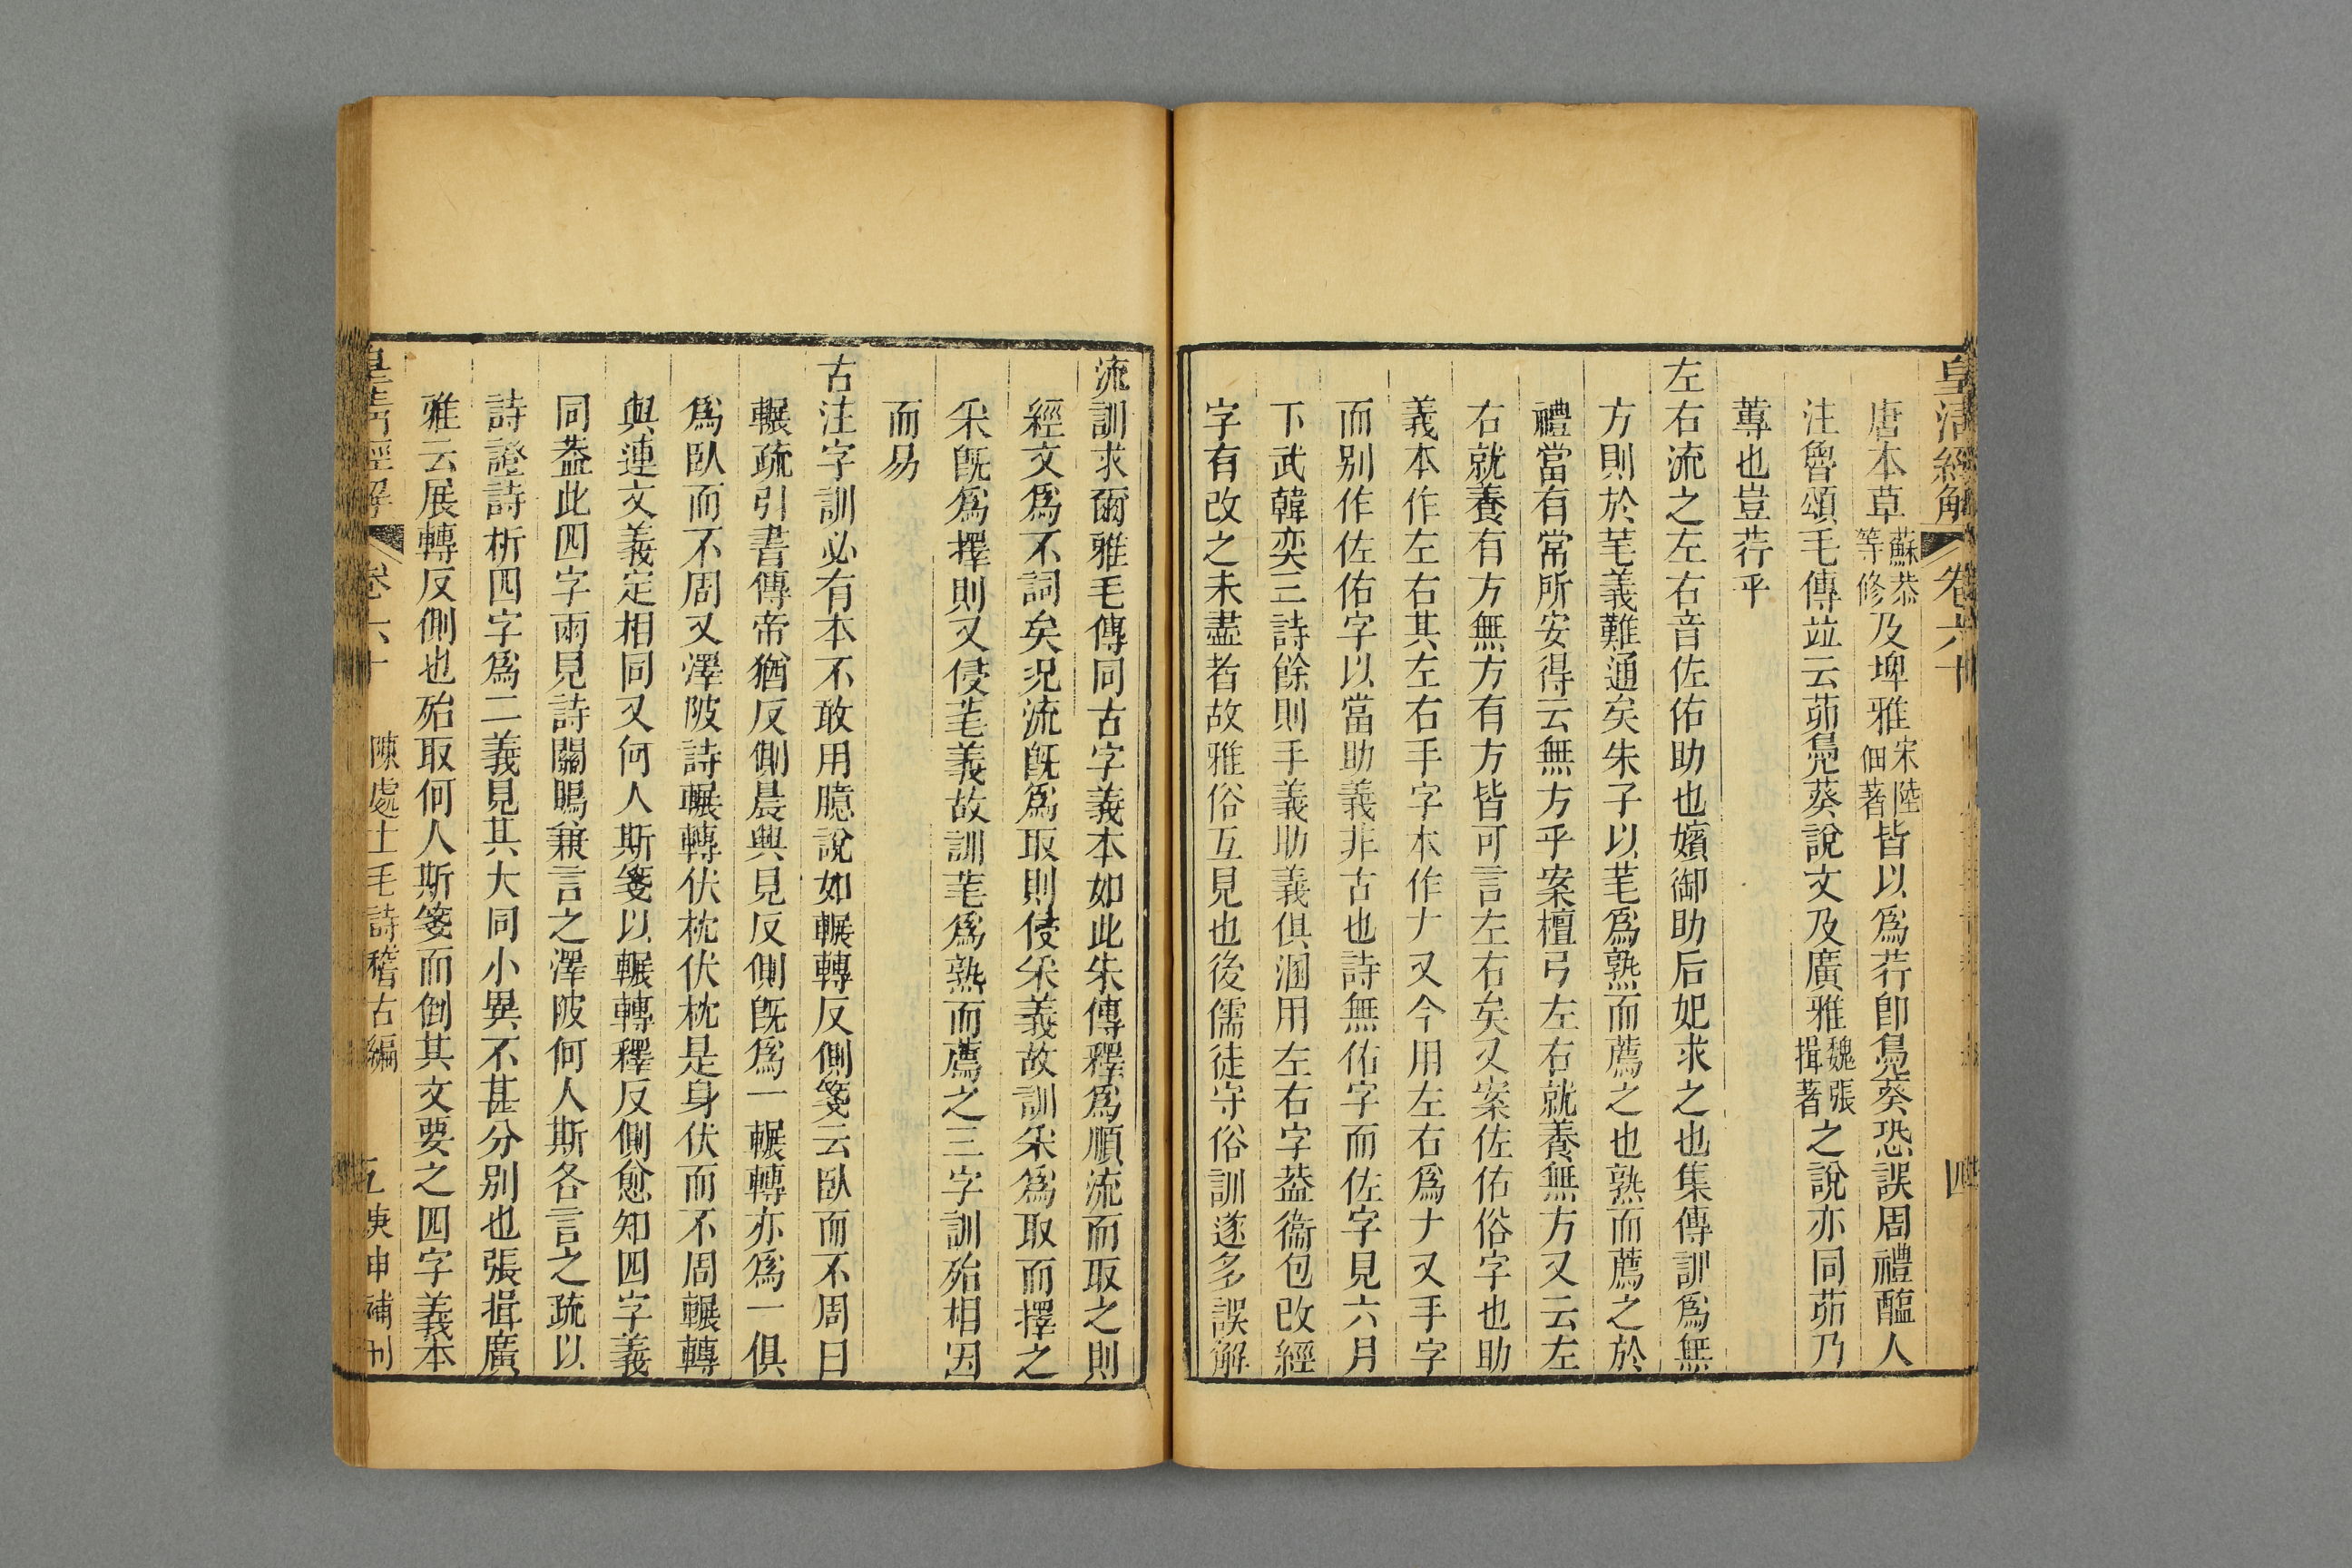 皇清經解
卷六十
四
唐本草蘇恭等修及埤雅宋陸佃著皆以爲荇卽鳧葵恐誤周禮醢人
注魯頌毛傳竝云茆鳧葵說文及廣雅魏張揖著之說亦同茆乃
蓴也豈荇乎
左右流之左右音佐佑助也嬪御助后妃求之也集傳訓爲無
方則於芼義難通矣朱子以芼爲熟而薦之也熟而薦之於
禮當有常所安得云無方乎案檀弓左右就養無方又云左
右就養有方無方有方皆可言左右矣又案佐佑俗字也助
義本作左右其左右手字本作𠂇又今用左右爲𠂇又手字
而别作佐佑字以當助義非古也詩無佑字而佐字見六月
下武韓奕三詩餘則手義助義俱溷用左右字葢衞包改經
字有改之未盡者故雅俗互見也後儒徒守俗訓遂多誤解
流訓求爾雅毛傳同古字義本如此朱傳釋爲順流而取之則
經文爲不詞矣況流旣爲取則侵采義故訓采爲取而擇之
采旣爲擇則又侵芼義故訓芼爲熟而薦之三字訓殆相因
而易
古注字訓必有本不敢用臆說如輾轉反側箋云臥而不周曰
輾疏引書傳帝猶反側晨興見反側旣爲一輾轉亦爲一俱
爲臥而不周又澤陂詩輾轉伏枕伏枕是身伏而不周輾轉
與連文義定相同又何人斯箋以輾轉釋反側愈知四字義
同葢此四字兩見詩關鴡兼言之澤陂何人斯各言之疏以
詩證詩析四字爲二義見其大同小異不甚分別也張揖廣
雅云展轉反側也殆取何人斯箋而倒其文要之四字義本
皇清經解
卷六十
陳處士毛詩稽古編
五
庚申補刊